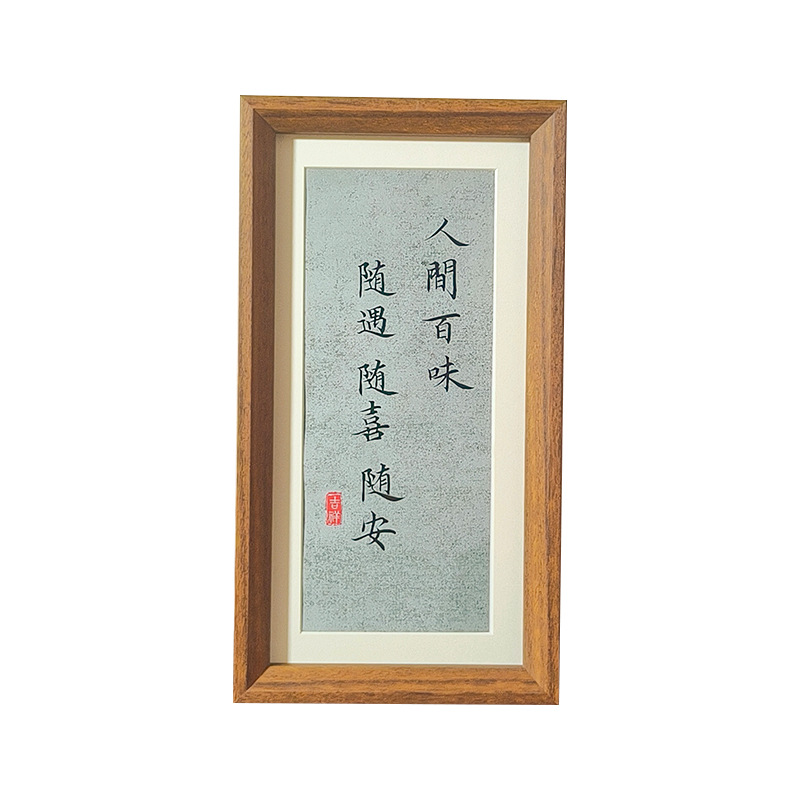 人間百味
随遇 随喜 随安
吉祥